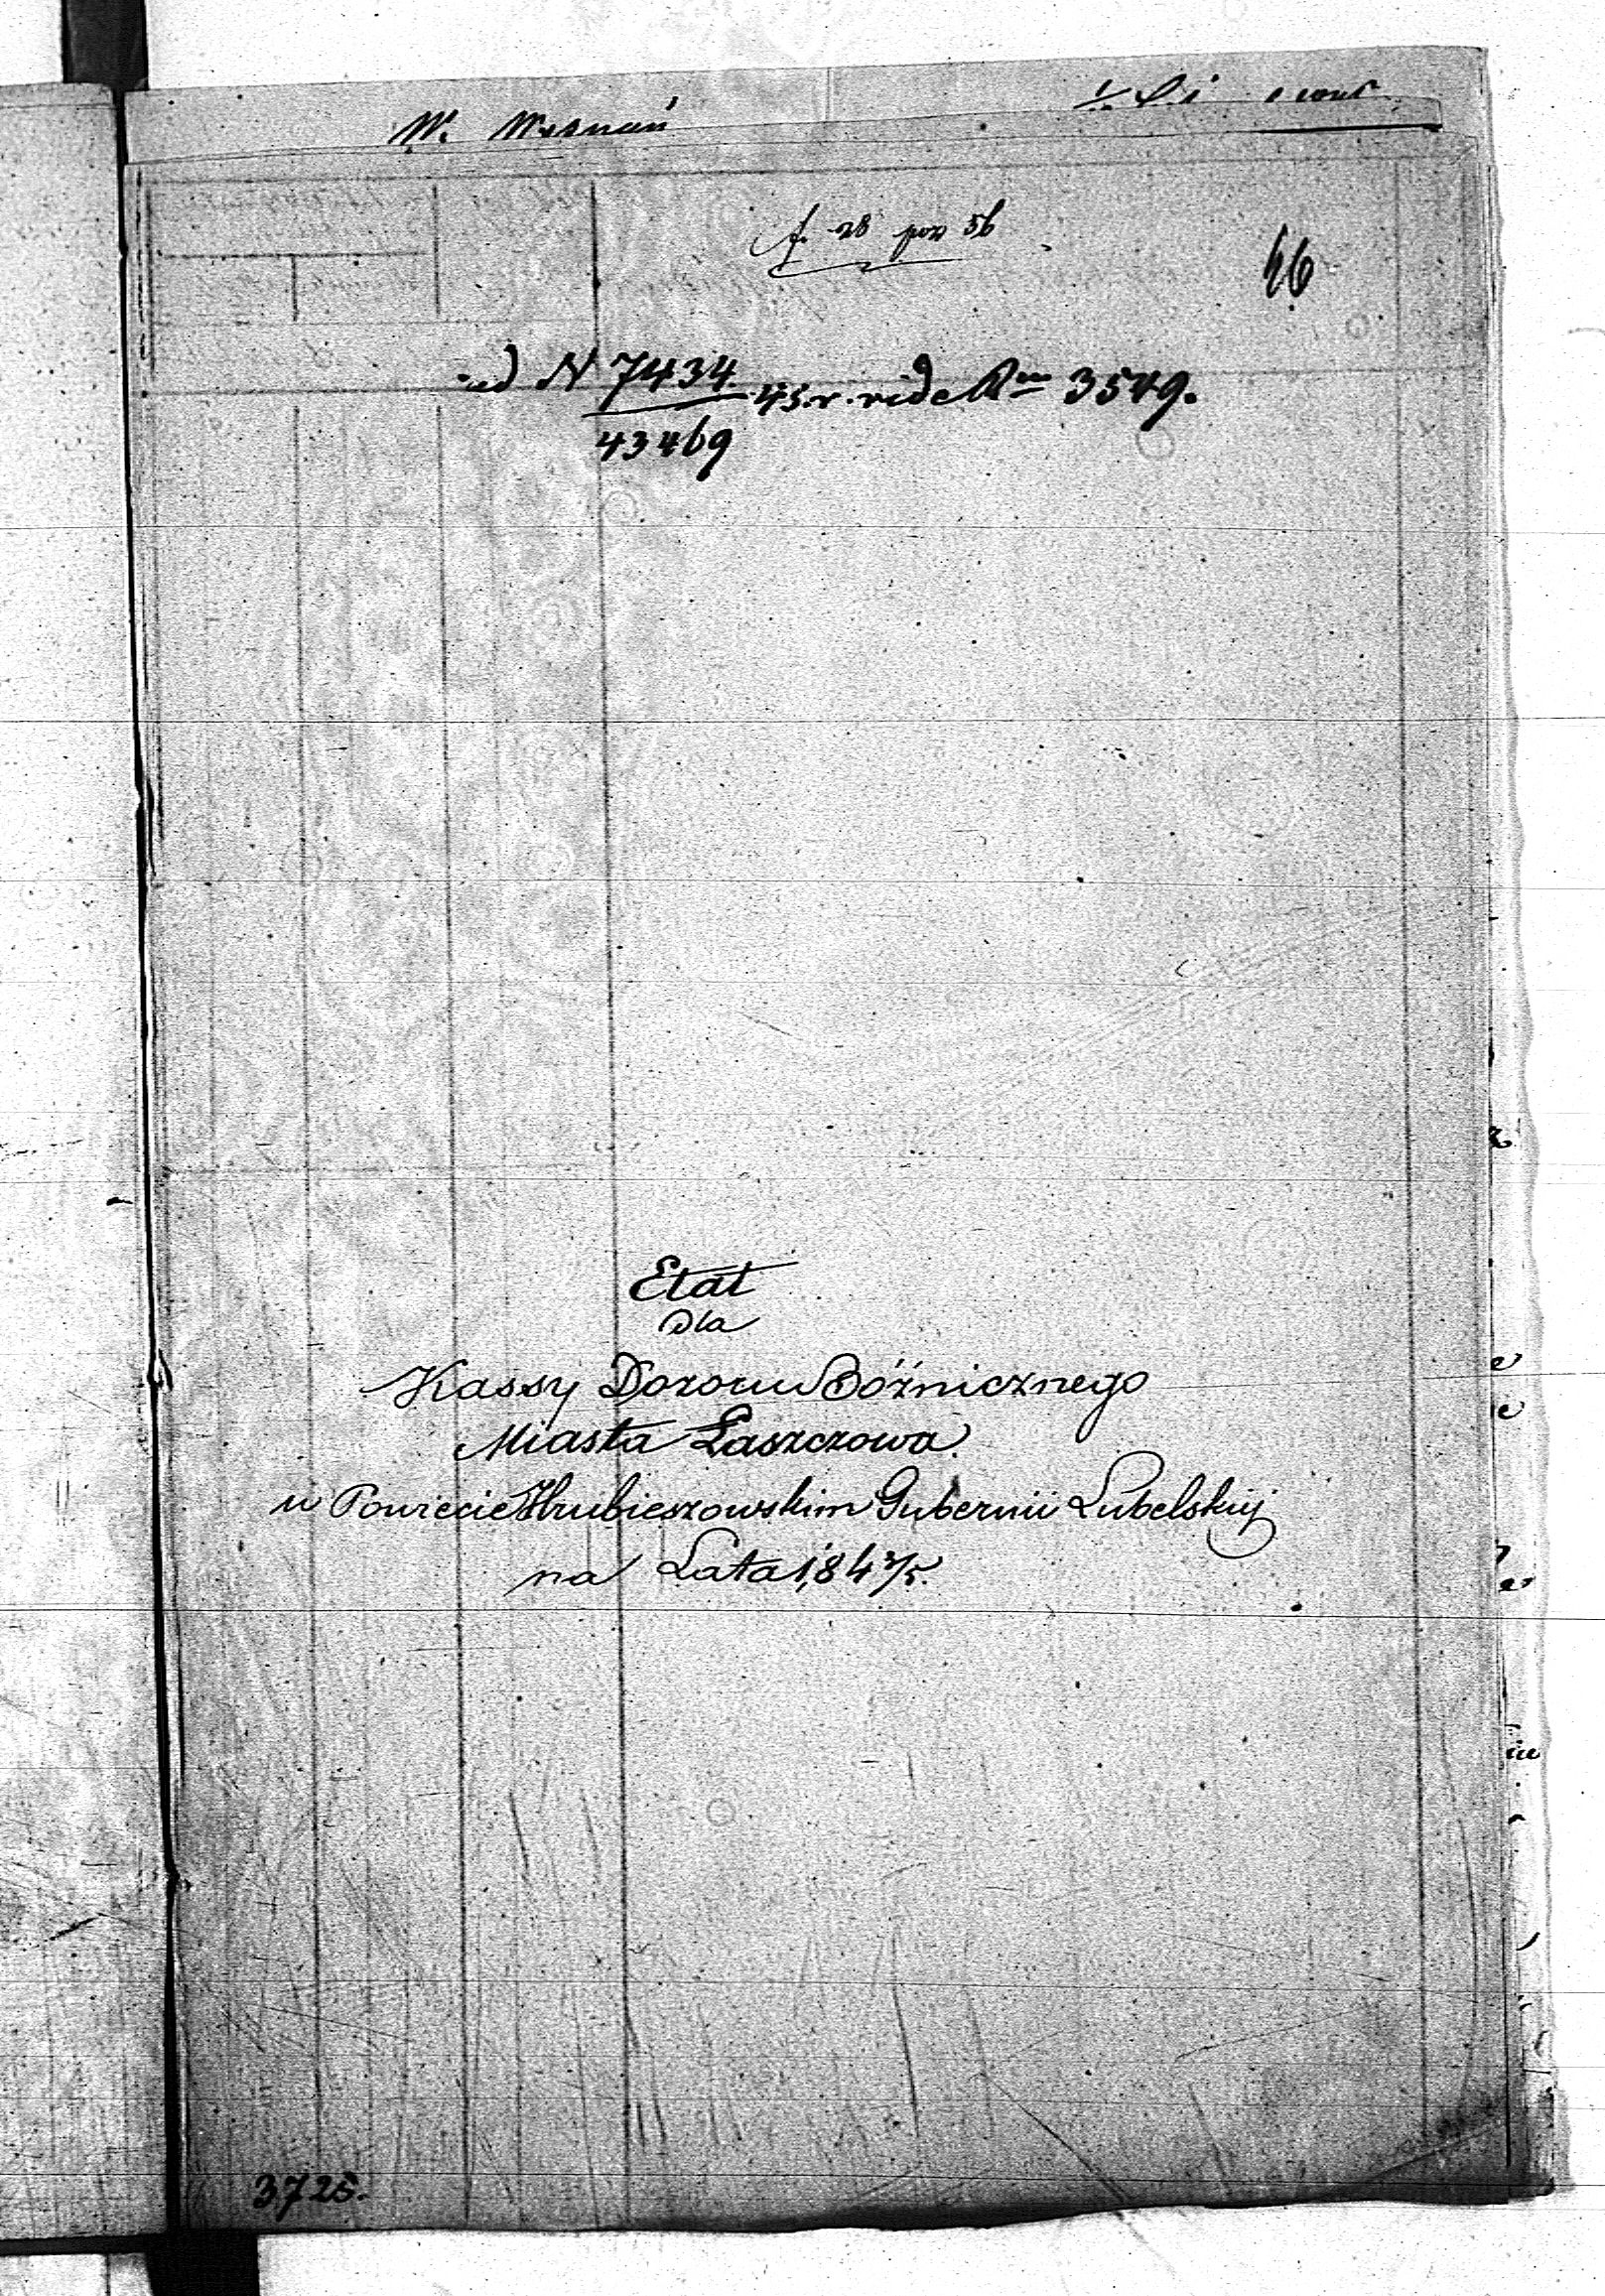 f. 28 poz 56
46
ad N 7434
43469
45 r. vide Nm 3549.
Etat
dla
Kassy Dozoru Bóżnicznego
Miasta Łaszczowa
w Powiecie Hrubieszowskim Gubernii Lubelskiej
na Lata 184 3/5.
3725.